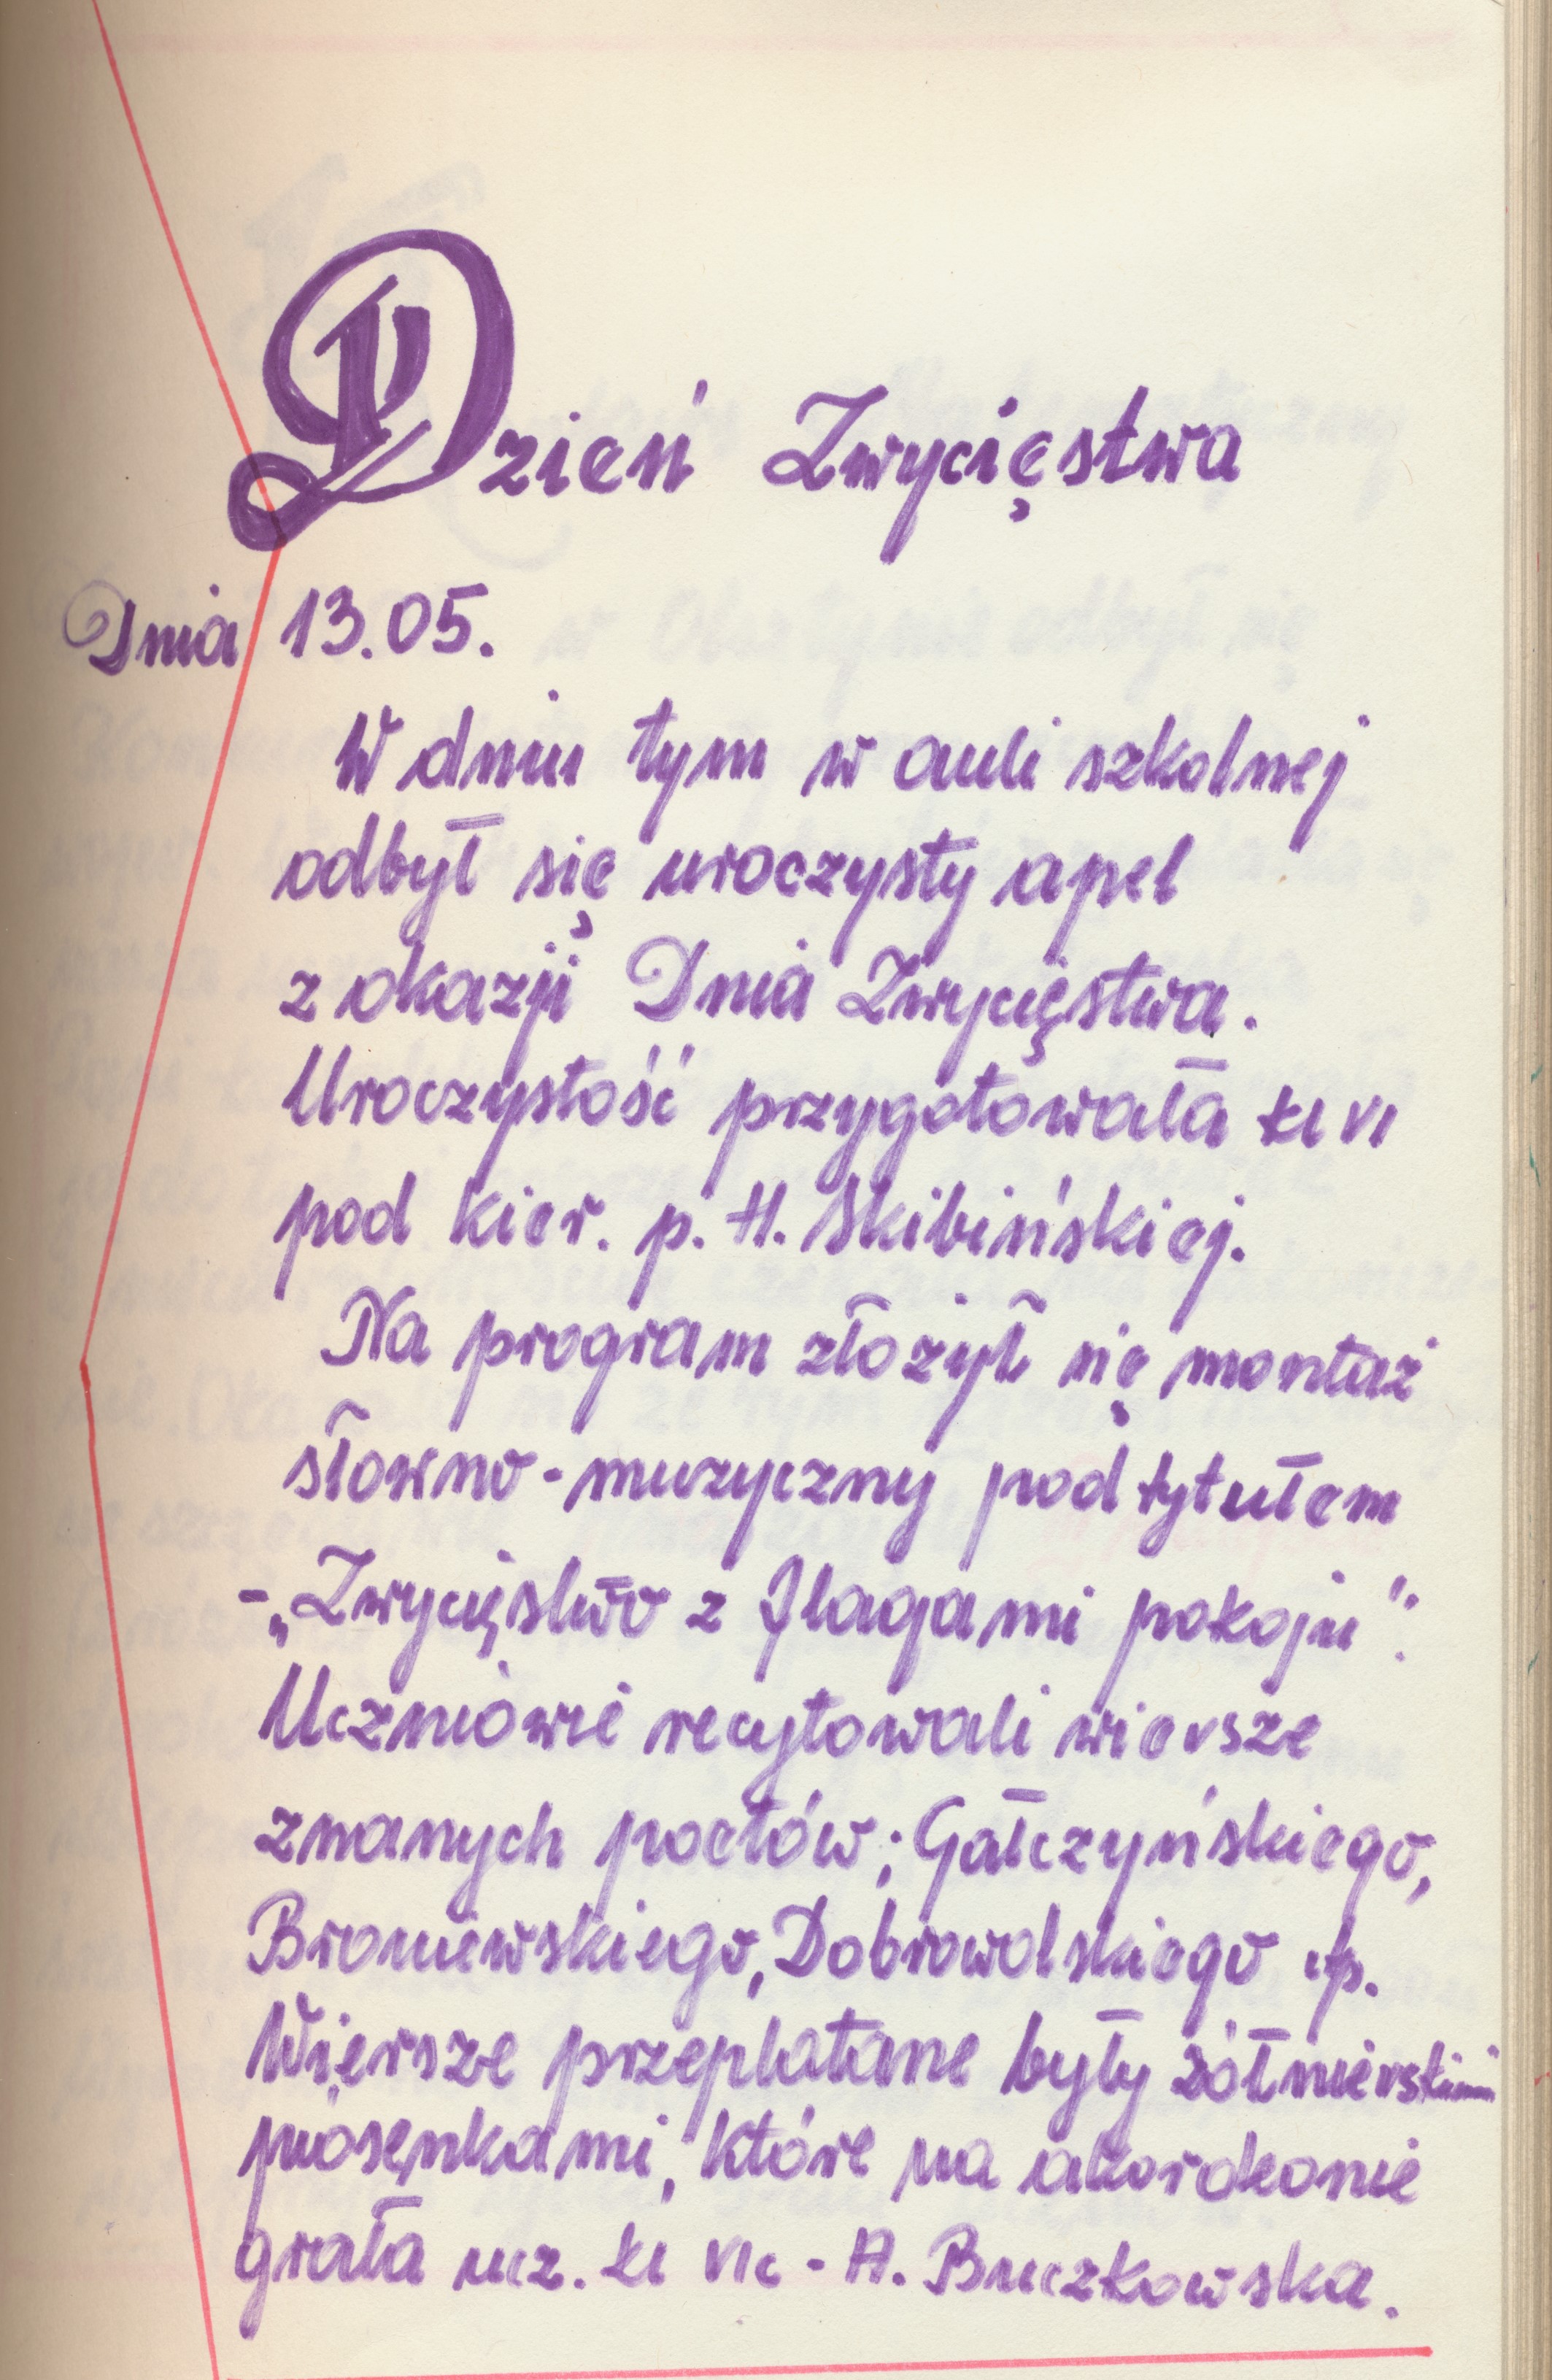 Dzień Zwycięstwa
Dnia 13.05.
W dniu tym w auli szkolnej
odbył się uroczysty apel
z okazji Dnia Zwycięstwa.
Uroczystość przygotowała kl VI
pod kier. p. H. Skibińskiej.
Na program złożył się montaż
słowno-muzyczny pod tytułem
-„Zwycięstwo z flagami pokoju”.
Uczniowie recytowali wiersze
znanych poetów; Gałczyńskiego,
Broniewskiego, Dobrowolskiego itp.
Wiersze przeplatane były żołnierskimi
piosenkami, które na akordeonie
grała ucz. kl VIc - A. Buczkowska.